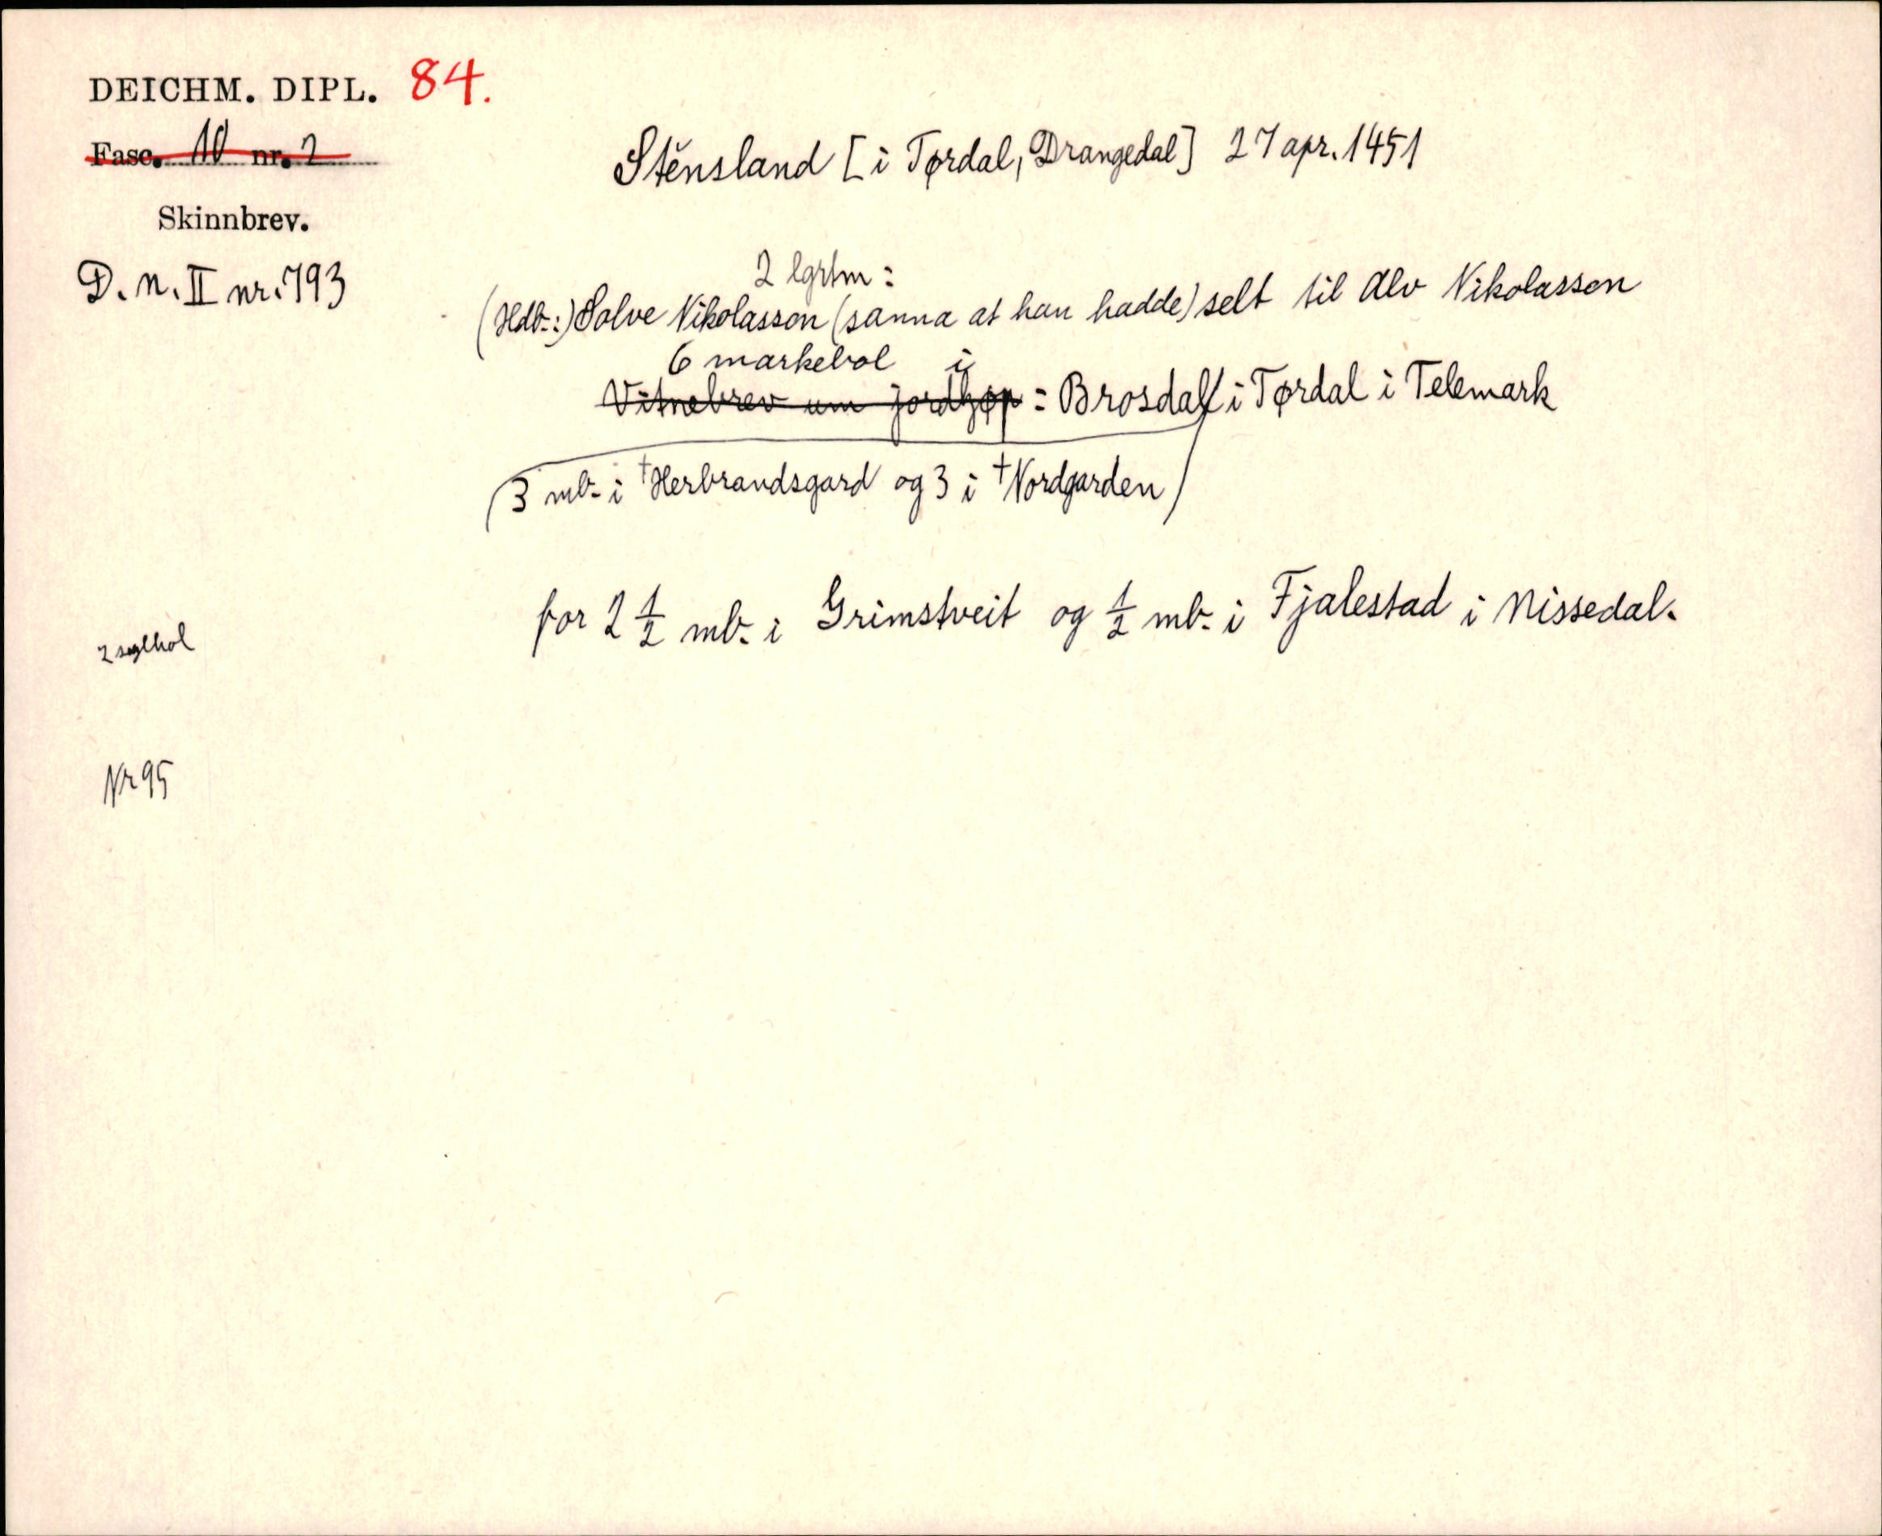 DEICHM. DIPL. 84.
Fasc. 10 nr. 2
Skinnbrev.
D. N. II nr. 793
Stěnsland [i Tørdal, Drangedal] 27 apr. 1451
2 lgrtm:
(Hdb:) Solve Nikolasson (sanna at han hadde) selt til Alv Nikolasson
6 markebol i
Vitnebrev um jordkjøp : Brosdal i Tørdal i Telemark
(3 mb. i †Herbrandsgard og 3 i †Nordgarden)
for 2 1/2 mb. i Grimstveit og 1/2 mb. i Fjalestad i Nissedal.
2 seglhol
Nr 95